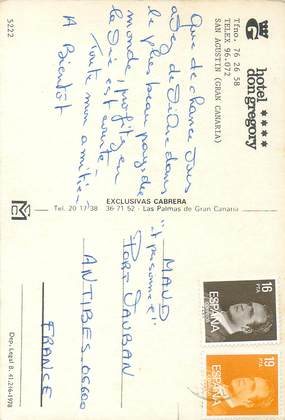 5222
hotel
don gregory
Tfno. 76 26 58
TELEX 96.072
SAN AGUSTIN (GRAN CANARIA)
Que de chance tu as
de vivre dans
le plus beau pays du
monde, profites en
la vie est courte
Toute mon amitié
A Bientôt
EXCLUSIVAS CABRERA
Tel. 20 17 38 36 71 52 - Las Palmas de Gran Canaria
Dep. Legal B. 41.246-1978
MAUD
PORT VAUBAN
ANTIBES 06600
FRANCE
16 PTA
ESPAÑA
19 PTA
ESPAÑA